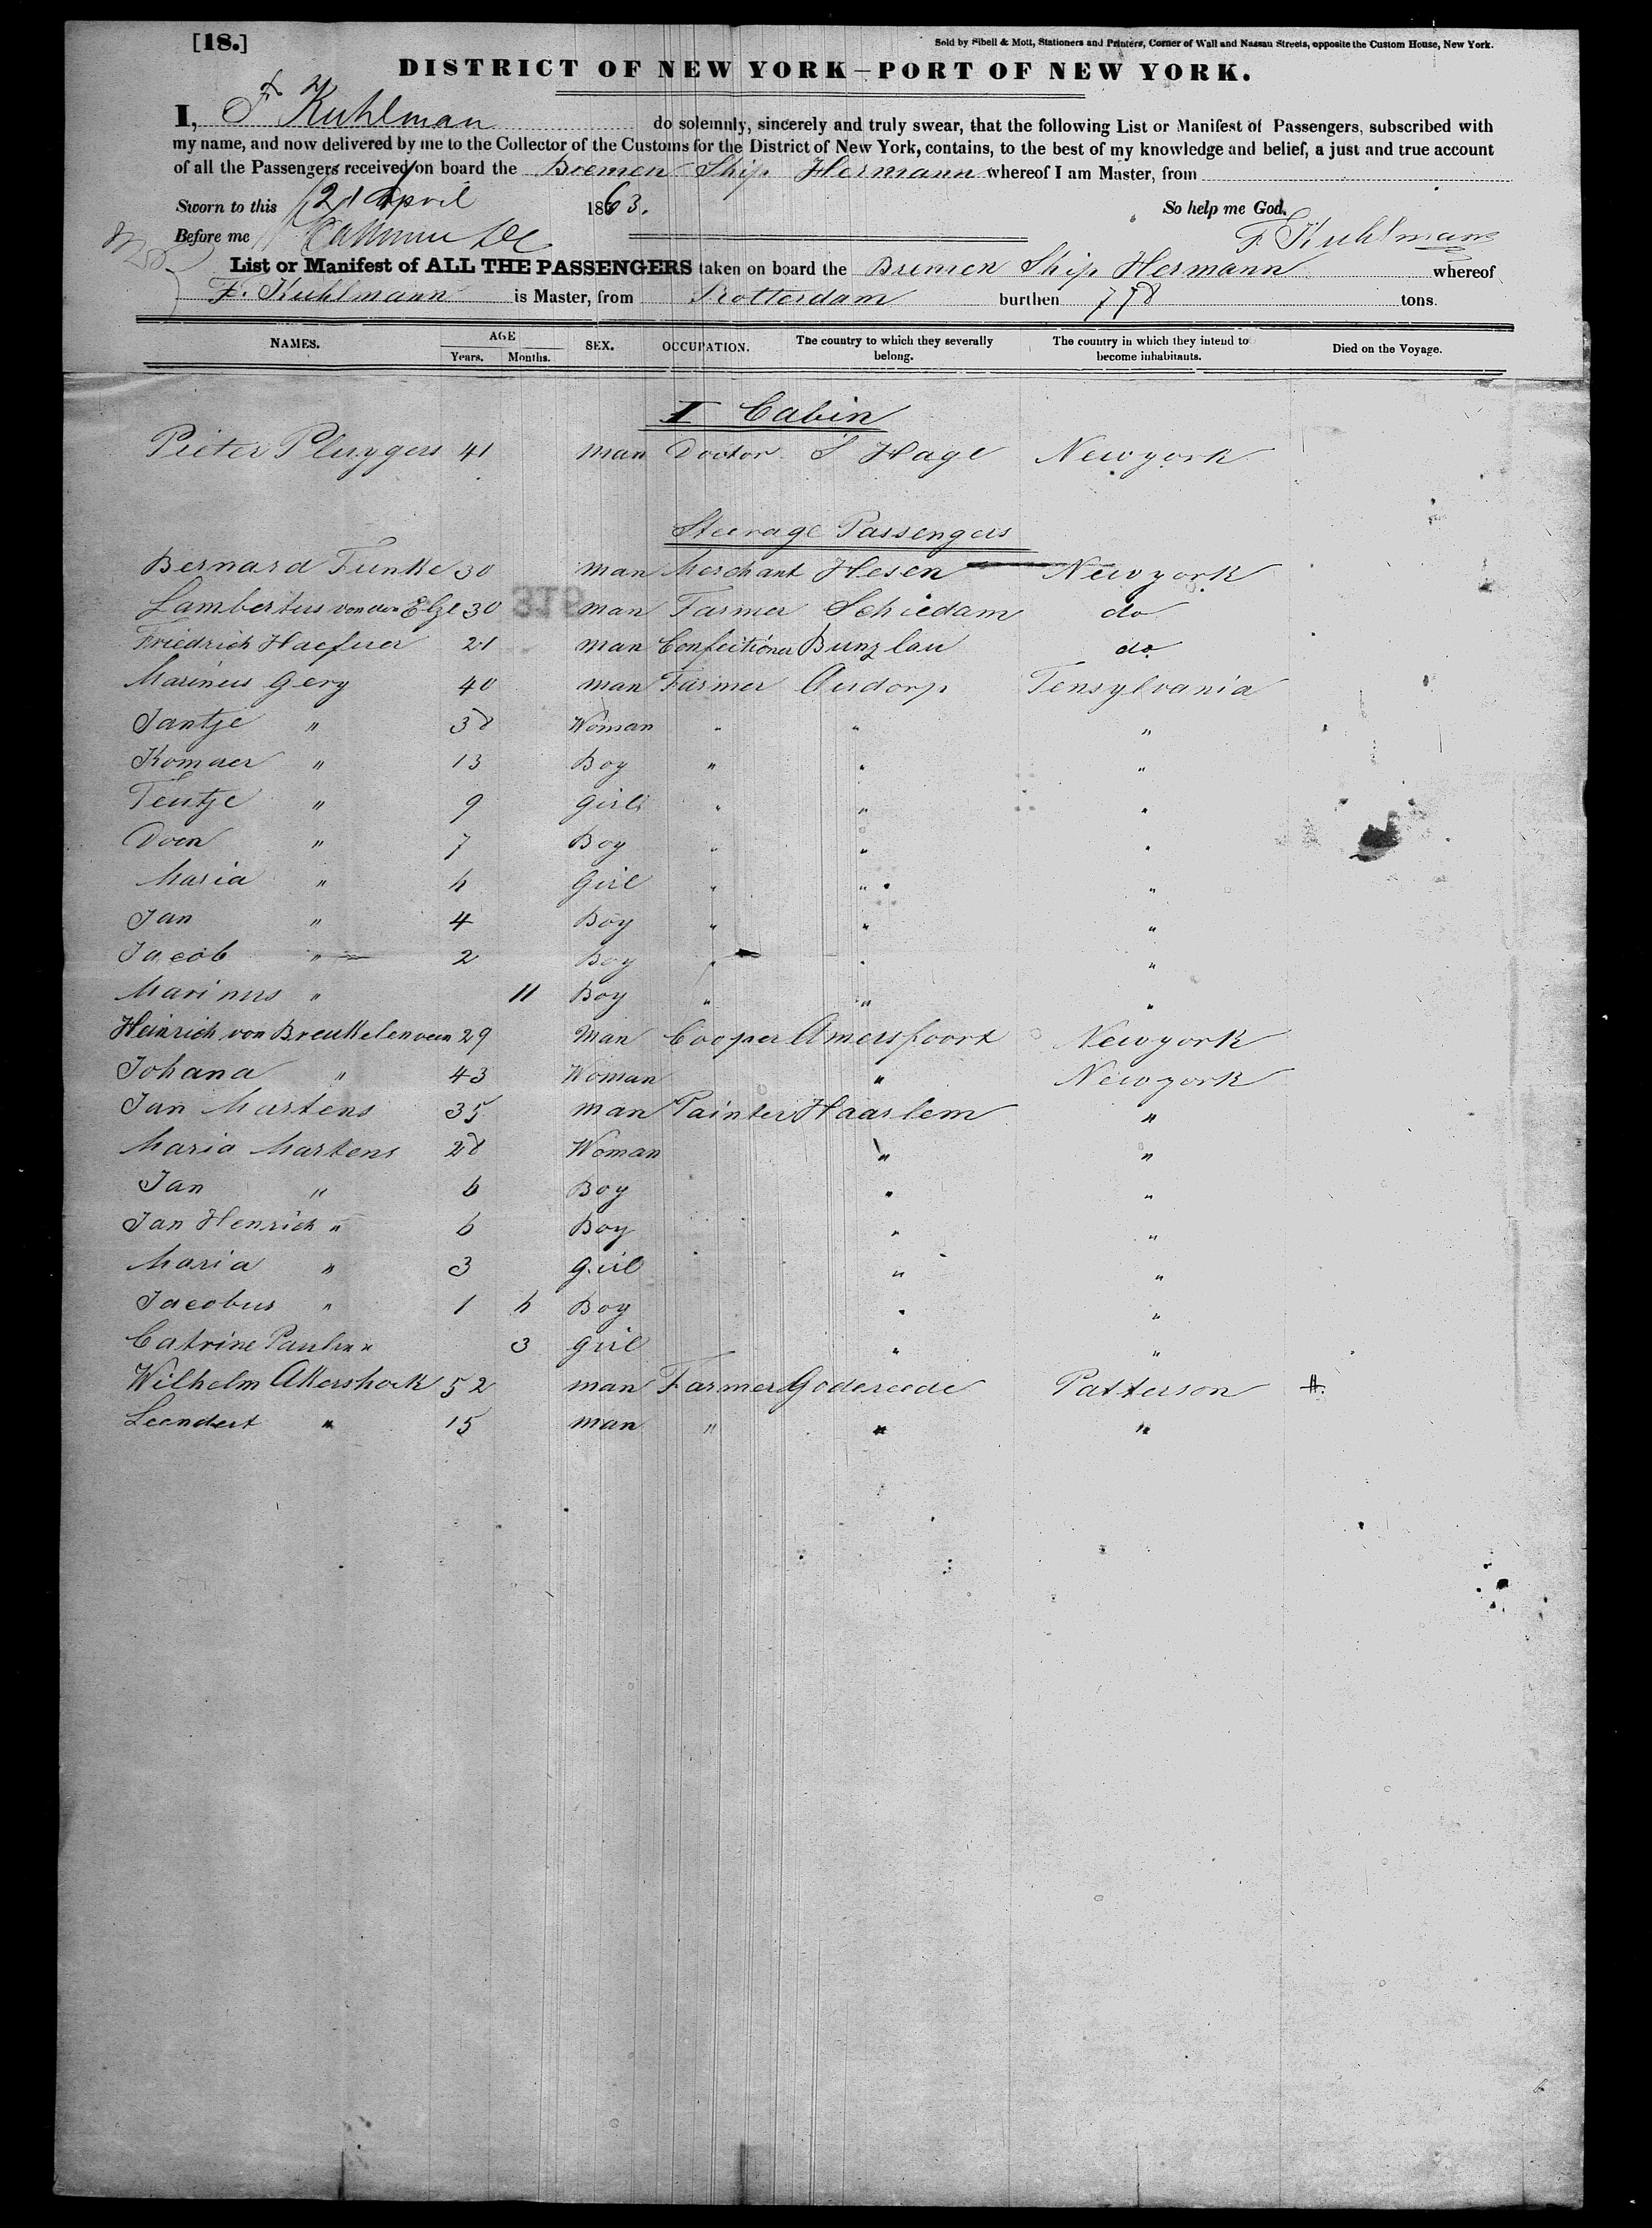 [18.]
Sold by Sibell & Mott, Stationers and Printers, Corner of Wall and Nassau Streets, opposite the Custom House, New York.
DISTRICT OF NEW YORK—PORT OF NEW YORK.
I, F Kuhlman do solemnly, sincerely and truly swear, that the following List or Manifest of Passengers, subscribed with
my name, and now delivered by me to the Collector of the Customs for the District of New York, contains, to the best of my knowledge and belief, a just and true account
of all the Passengers received on board the Bremen Ship Hermann whereof I am Master, from
Sworn to this April 1863. So help me God.
Before me F. Kuhlmann
List or Manifest of ALL THE PASSENGERS taken on board the Bremen Ship Hermann whereof
F. Kuhlmann is Master, from Rotterdam burthen 778 tons.
NAMES. AGE Years. Months. SEX. OCCUPATION. The country to which they severally belong. The country in which they intend to become inhabitants. Died on the Voyage.
I Cabin
Pieter Pluygers 41 man Doctor S Hage Newyork
Steerage Passengers
Bernard Funke 30 man Merchant Hesen Newyork
Lambertus von der Elze 30 man Farmer Schiedam do
Friedrich Haefner 21 man Confectioner Bunzlau do
Marinus Gery 40 man Farmer Ousdorp Pensylvania
Jantje " 38 Woman " " "
Kommer " 13 Boy " " "
Teutje " 9 Girl " " "
Doen " 7 Boy " " "
Maria " Girl " " "
Jan " 4 Boy " " "
Jacob " 2 Boy " " "
Marinus " 11 Boy " " "
Heinrich von Breukelenveen 29 Man Cooper Amersfoort Newyork
Johana " 43 Woman " Newyork
Jan Martens 35 man Painter Haarlem "
Maria Martens 28 Woman " "
Jan " 6 Boy " "
Jan Henrich " 6 Boy " "
Maria " 3 girl " "
Jacobus " 1 Boy " "
Catrine " 3 girl " "
Wilhelm Akershoek 52 man Farmer Godereede Patterson
Leendert " 15 man " " "